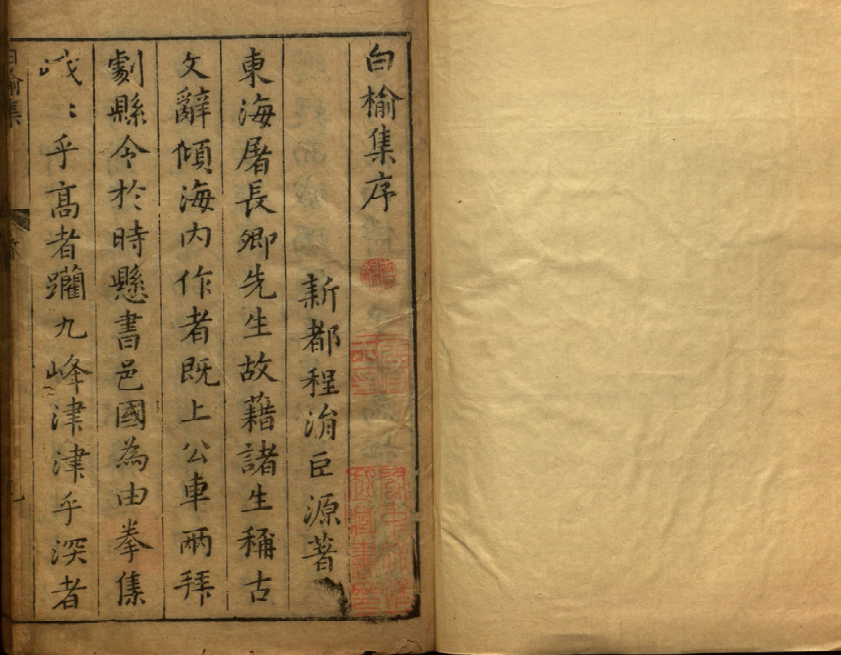 白榆集序
新都程涓巨源著
東海屠長卿先生故藉諸生稱古
文辭傾海内作者既上公車兩拜
劇縣令於時懸書邑國為由拳集
峨〻乎高者躪九峰津津乎深者
白榆集